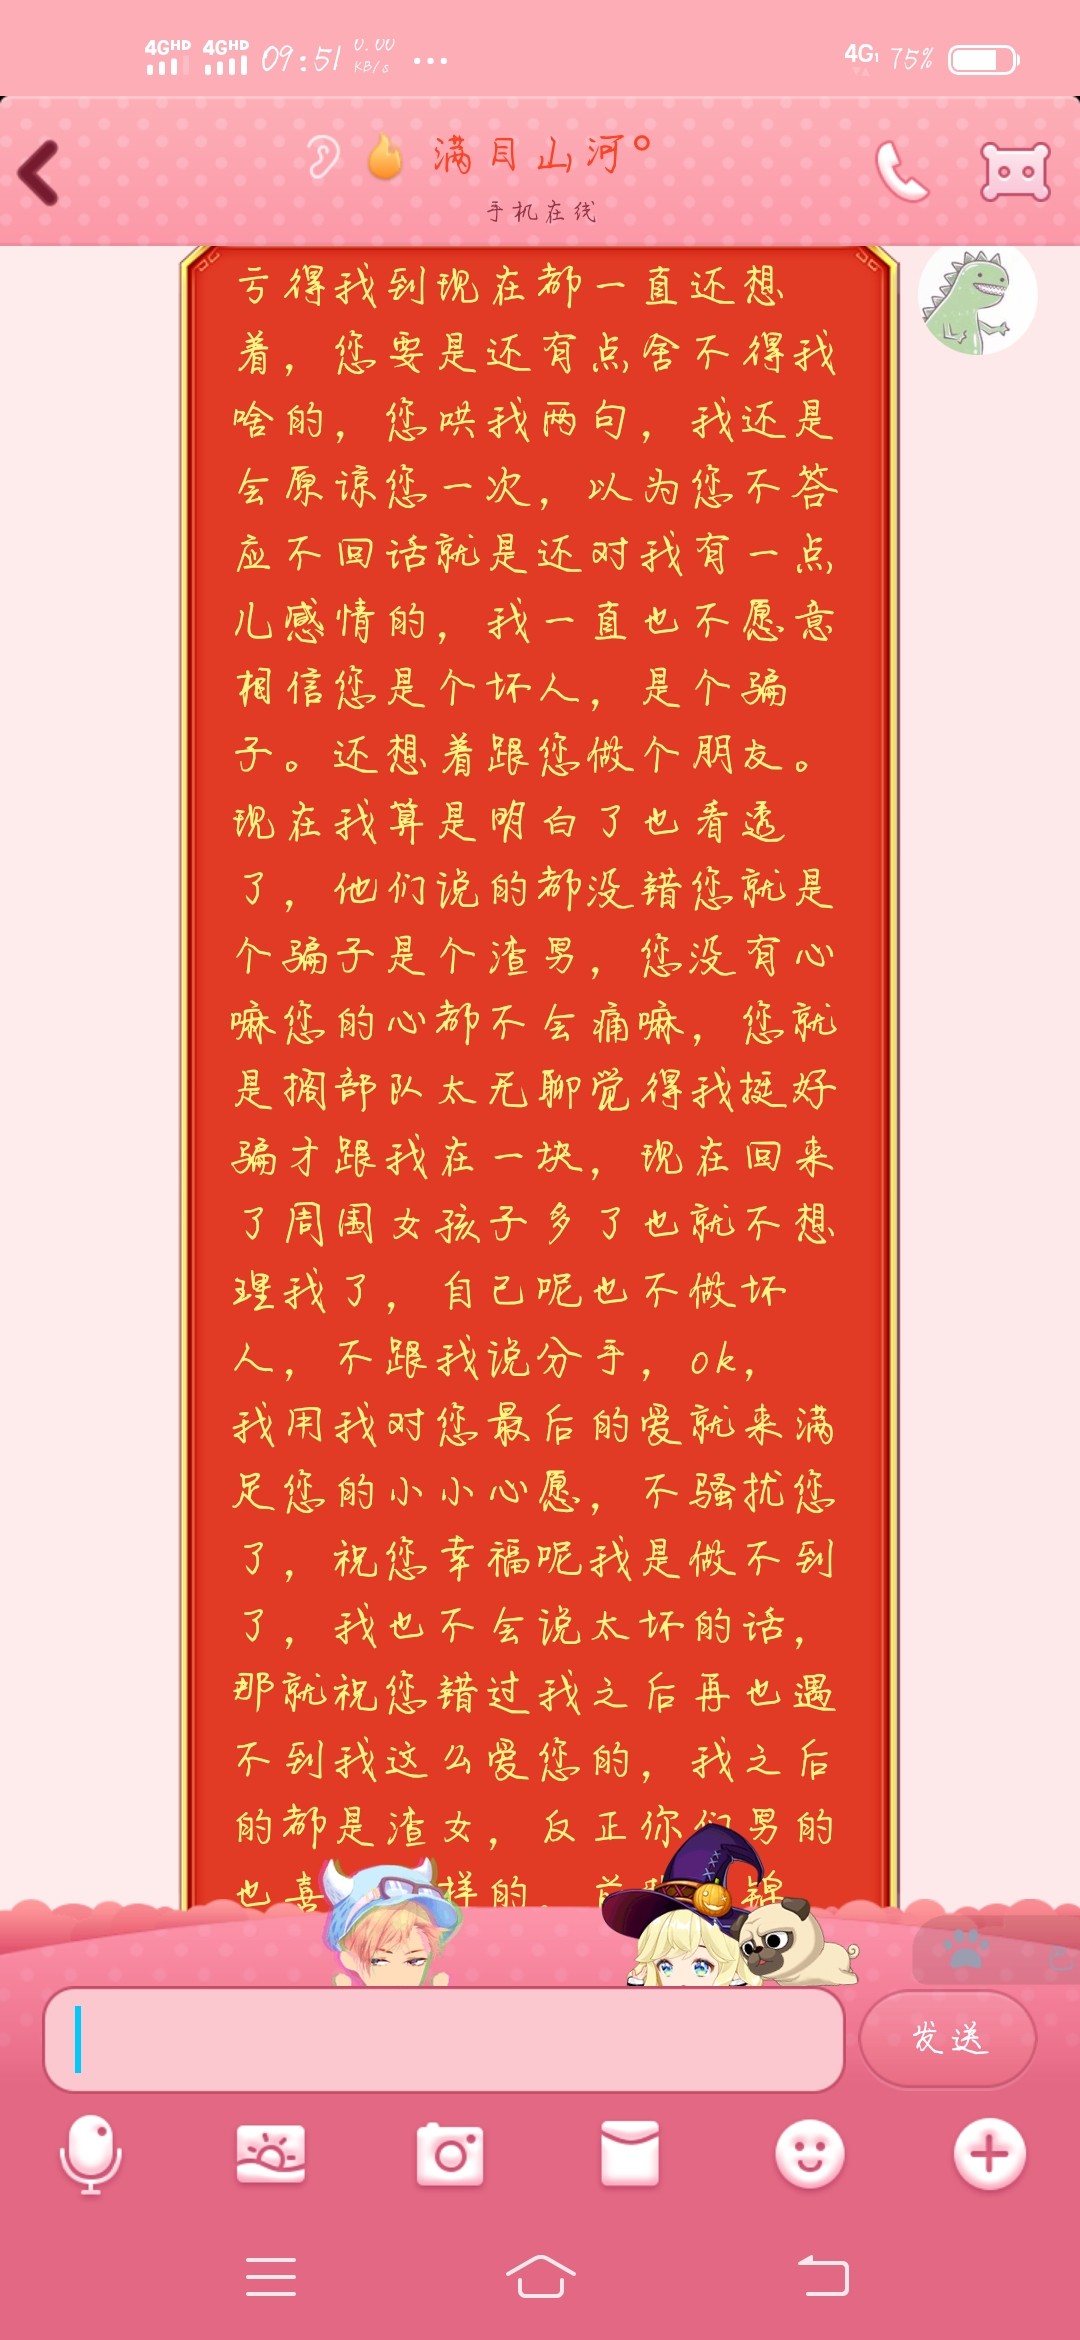 4GHD 4GHD 09:51 0.00 KB/s ... 4G 75%
满目山河°
手机在线
亏得我到现在都一直还想
着，您要是还有点舍不得我
啥的，您哄我两句，我还是
会原谅您一次，以为您不答
应不回话就是还对我有一点
儿感情的，我一直也不愿意
相信您是个坏人，是个骗
子。还想着跟您做个朋友。
现在我算是明白了也看透
了，他们说的都没错您就是
个骗子是个渣男，您没有心
嘛您的心都不会痛嘛，您就
是搁部队太无聊觉得我挺好
骗才跟我在一块，现在回来
了周围女孩子多了也就不想
理我了，自己呢也不做坏
人，不跟我说分手，ok，
我用我对您最后的爱就来满
足您的小小心愿，不骚扰您
了，祝您幸福呢我是做不到
了，我也不会说太坏的话，
那就祝您错过我之后再也遇
不到我这么爱您的，我之后
的都是渣女，反正你们男的
也喜 样的，
发送